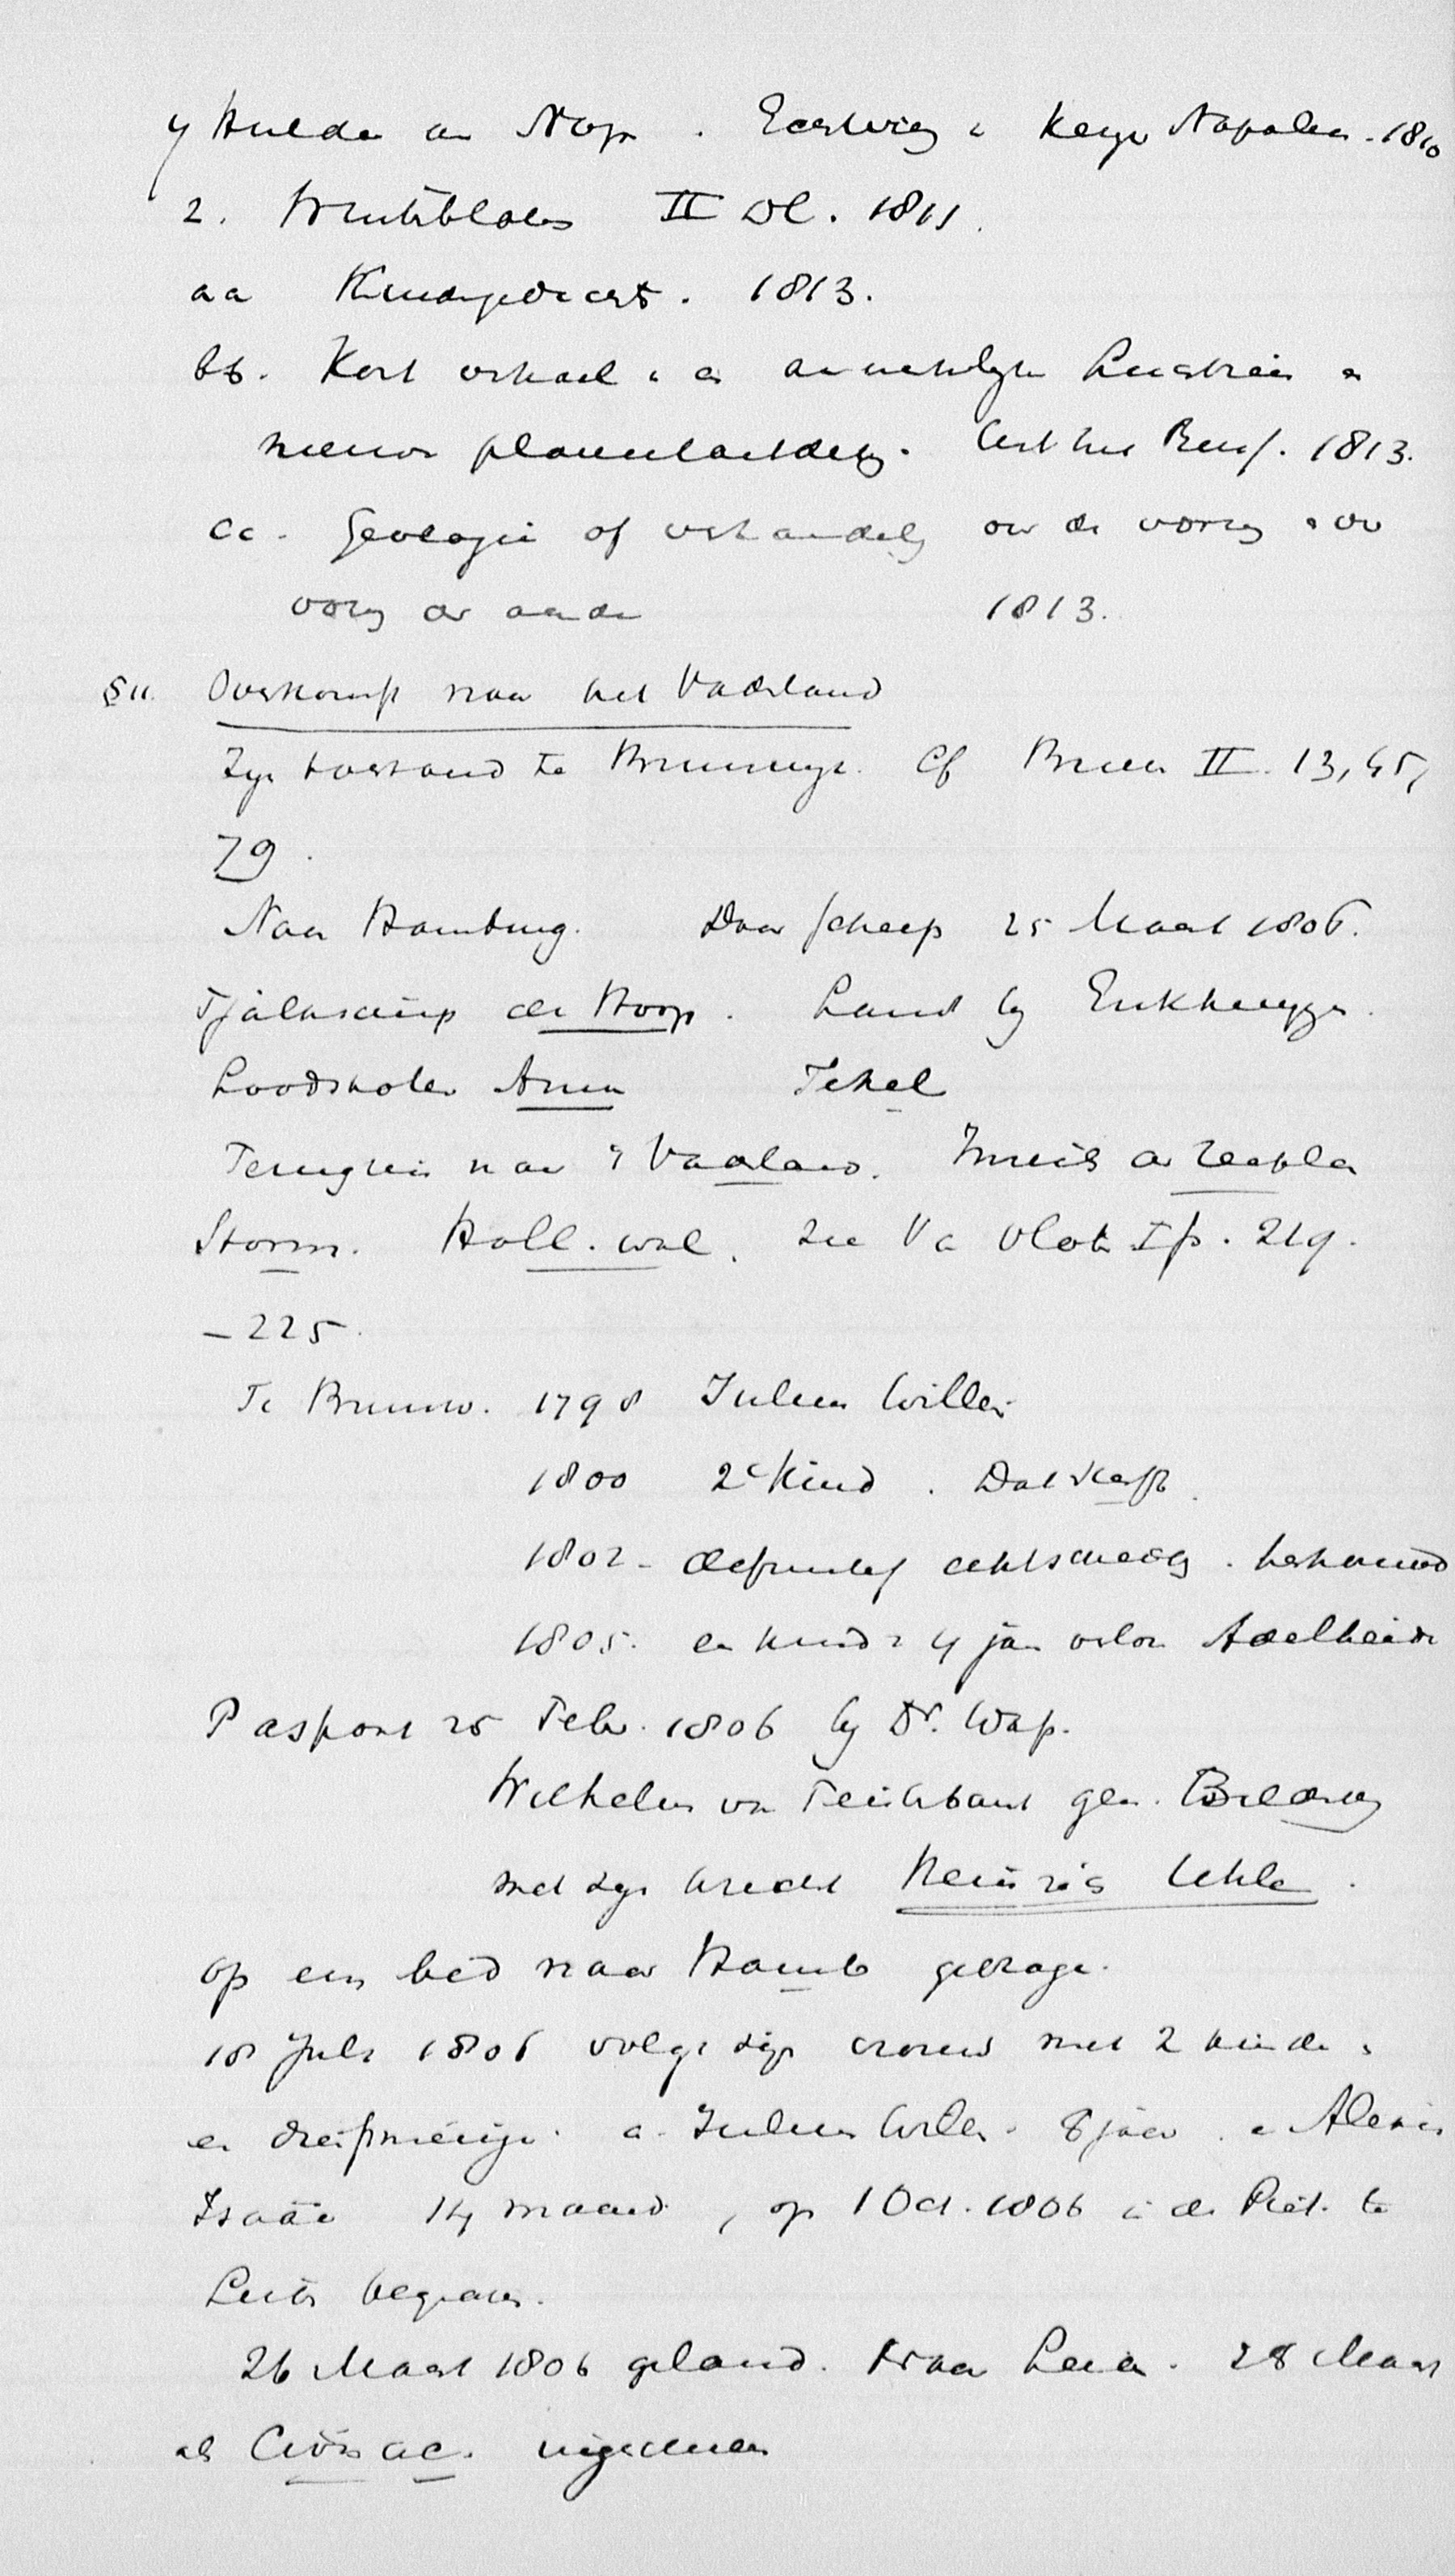 y Hulde aan Nap. Eerkrieg Keyz Napoleon. 1810
z. Winterbloem II Dl. 1811.
aa Kindergedicht. 1813.
bb. Kort verhaal v. e. aanmerklijke Luchtreis en
nieuwe planeetontdekg. Uit het Russ. 1813.
cc. Geologie of verhandelg over de vormg en ver
vormg der aarde 1813.
§11. Overkomst naar het Vaderland
Zijn toestand te Brunswijk. Cf Brieven II. 13, 65,
79.
Naar Hamburg. Daar scheep 25 Maart 1806.
Tjalkschip de Hoop. Land bij Enkhuyzen.
Loodskotter Anna Texel
Terugreis naar 't Vaderland. Inreis de Zeeplan
Storm. Holl. wal. Zie Va Vloten I p. 219.
– 225.
Te Brunsw. 1798 Julius Willem
1800 2e Kind. Dat sterft.
1802 – definitief echtscheidg.
1805. een kind 4 jaar verloren Adelheide
Paspoort 25 Febr. 1806 bij Dr. Wap.
Wilhelm von Teisterbant gen. Bilderdijk
met zijn knecht Heinrig Uhle.
op een bed naar Hamb gedragen.
18 Juli 1806 volgt zijn vrouw met 2 kinderen
en dreismeisje. a. Julius Willem. 8 jaar. en Alexis
Isaäc 14 maand, op 1 Oct. 1806 in de Piet. te
Leiden begraven.
26 Maart 1806 geland. Naar Leiden. 28 Maart
als Civis ac. ingeschreven